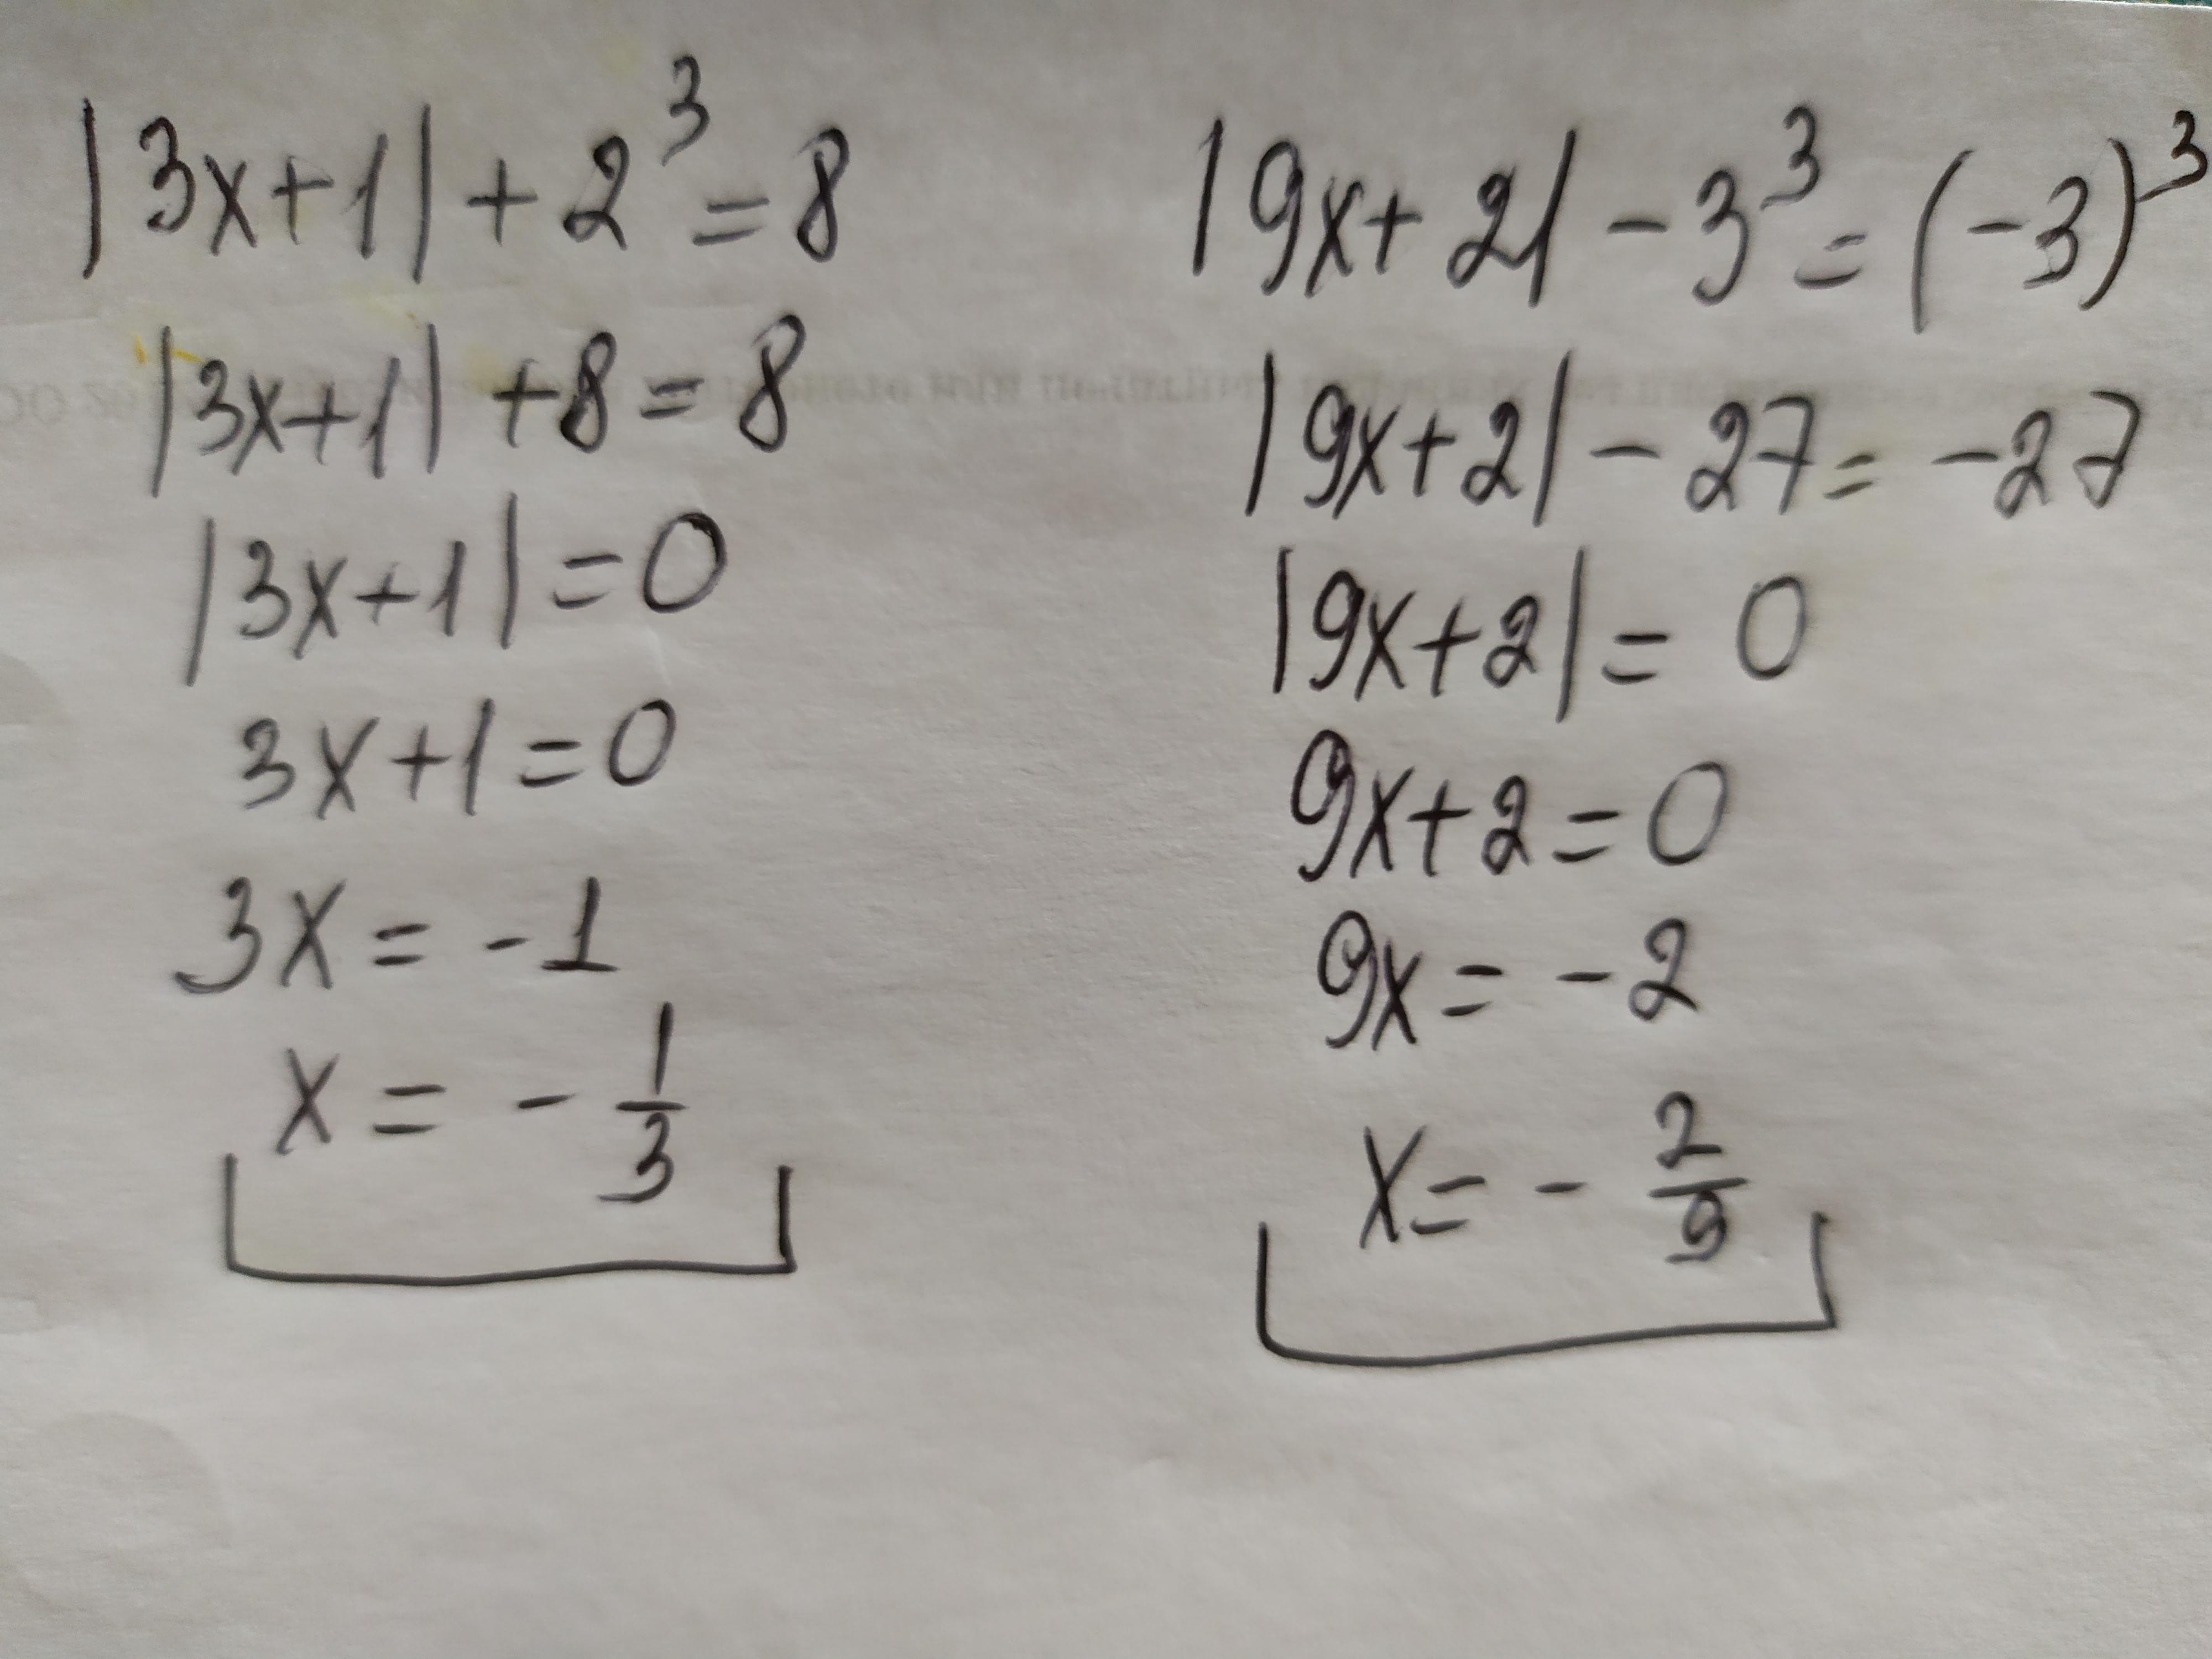 |3x+1|+2³=8
|3x+1|+8=8
|3x+1|=0
3x+1=0
3x=-1
x=-1/3
|9x+2|-3³=(-3)³
|9x+2|-27=-27
|9x+2|=0
9x+2=0
9x=-2
x=-2/9